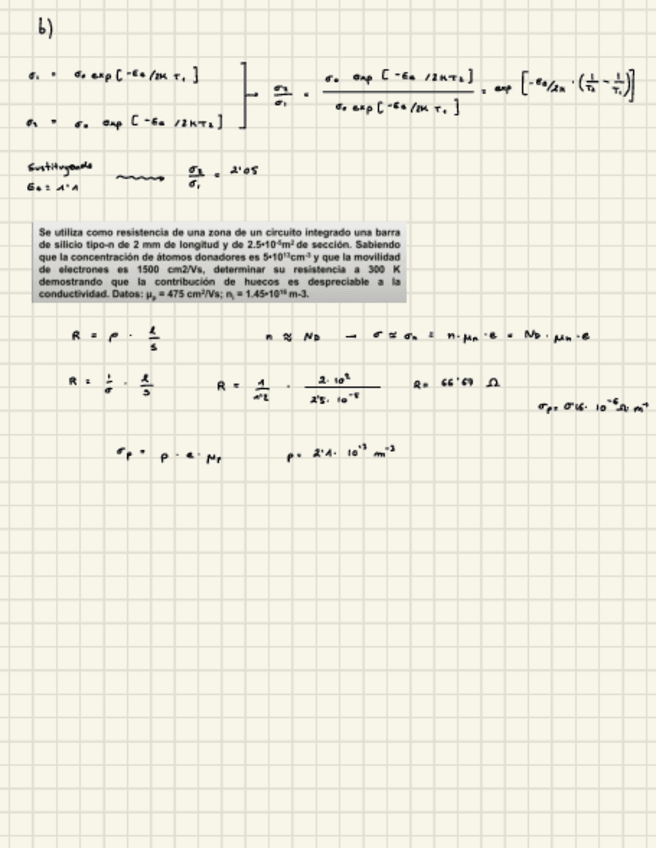 b)
σ₁ = σ₀ exp [-E₀/2K T₁]
σ₂/σ₁ = σ₀ exp [-E₀ /2KT₂] / σ₀ exp [-E₀ /2K T₁] = exp [-E₀/2K · (1/T₂ - 1/T₁)]
σ₂ = σ₀ exp [-E₀ /2KT₂]
Sustituyendo
E₀ = 1'1 → σ₂/σ₁ = 2'05
Se utiliza como resistencia de una zona de un circuito integrado una barra
de silicio tipo-n de 2 mm de longitud y de 2.5•10⁻⁸m² de sección. Sabiendo
que la concentración de átomos donadores es 5•10¹³cm⁻³ y que la movilidad
de electrones es 1500 cm2/Vs, determinar su resistencia a 300 K
demostrando que la contribución de huecos es despreciable a la
conductividad. Datos: μₚ = 475 cm²/Vs; nᵢ = 1.45•10¹⁶ m-3.
R = ρ · l/s n ≈ N_D → σ ≈ σₙ = n · μₙ · e = N_D · μₙ · e
R = 1/σ · l/s R = 1/1'2 · 2·10² / 2'5·10⁻⁸ R = 66'67 Ω
σₚ = 0'16 · 10⁻⁶ Ω m⁻¹
σₚ = p · e · μₚ p = 2'1 · 10⁻³ m⁻³